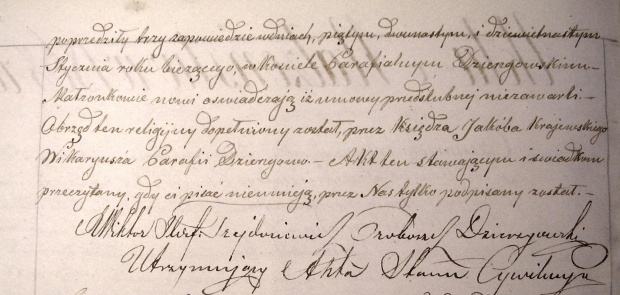 poprzedziły trzy zapowiedzie wdniach, piątym, dwunastym, i dziewietnastym
Stycznia roku bieżącego, w Kosciele Parafialnym Dziergowskim –
Małżonkowie nowi oswiadczają iż umowy przedślubnej niezawarli –
Obrząd ten religijny dopełniony został, przez Księdza Jakóba Krajewskiego
Wikaryusza Parafii Dziergowo – Akt ten stawającym i swiadkom
przeczytany, gdy ci pisać nieumieją, przez Nas tylko podpisany został. –
Proboszcz Dzierzgowski
Utrzymujący Akta Stanu Cywilnego